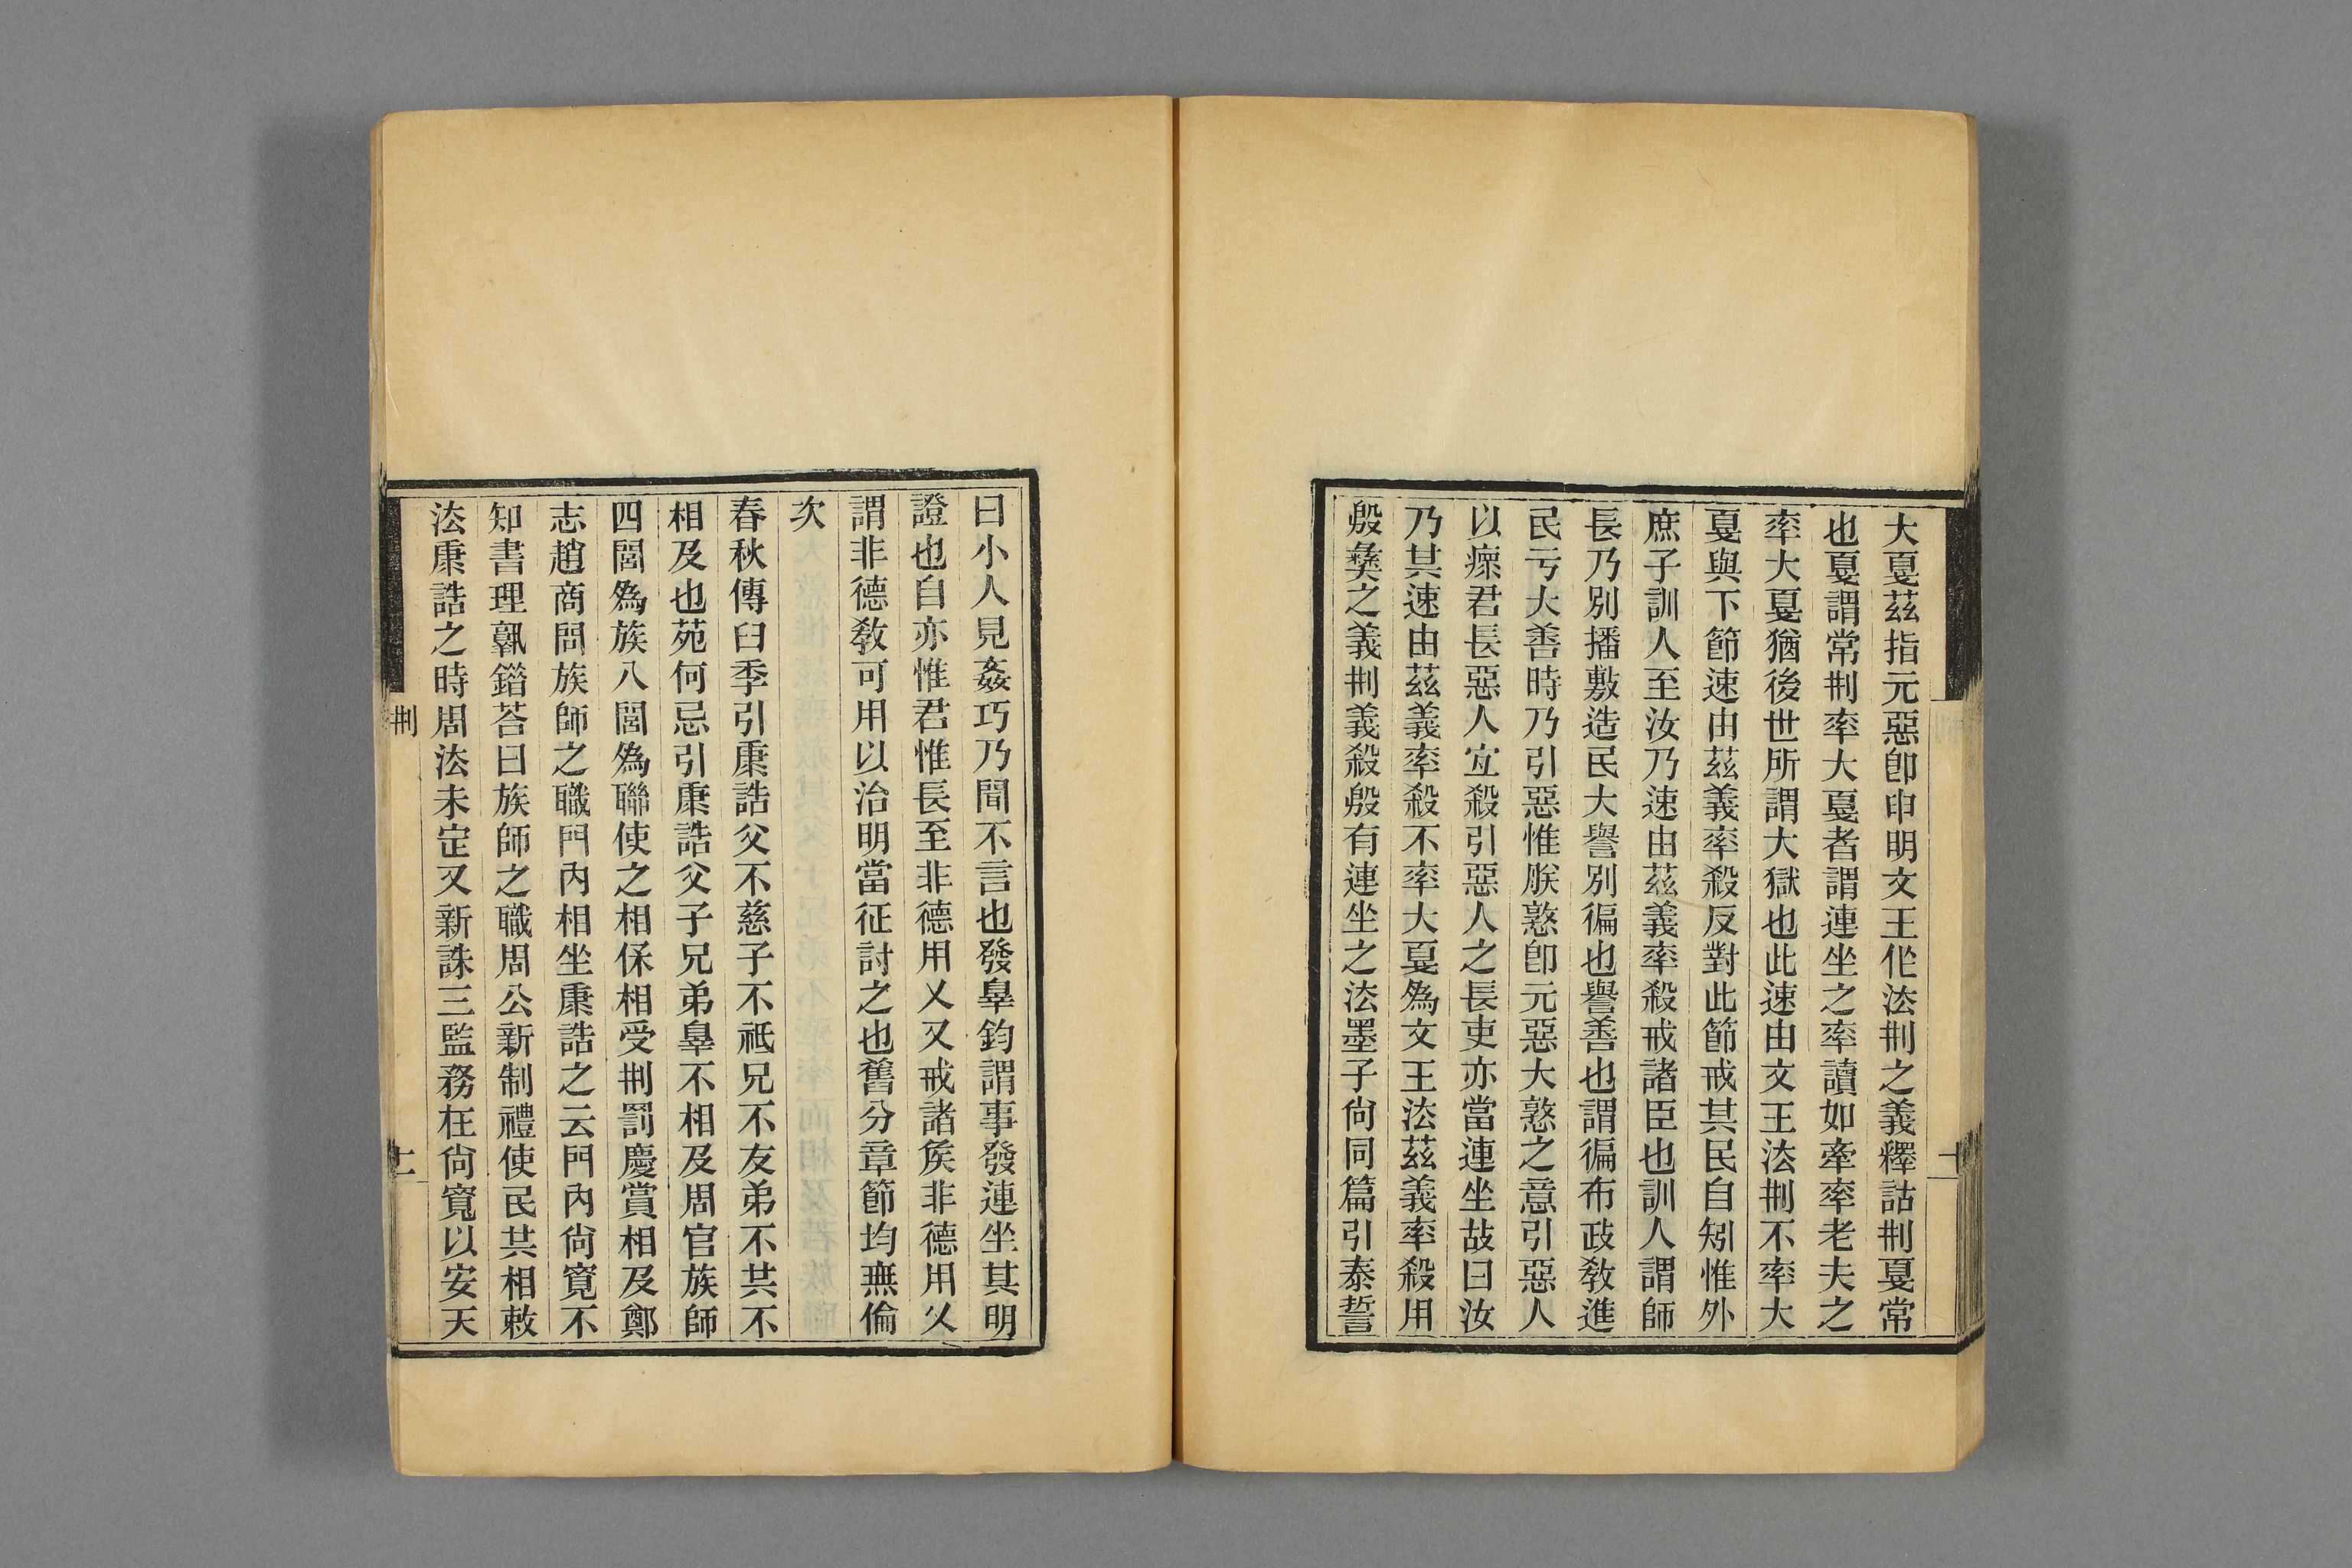 大戛茲指元惡卽申明文王作法㓝之義釋詁㓝戛常
也戛謂常㓝率大戛者謂連坐之率讀如牽率老夫之
率大戛猶後世所謂大獄也此速由文王法㓝不率大
戛與下節速由茲義率殺反對此節戒其民自矧惟外
庶子訓人至汝乃速由茲義率殺戒諸臣也訓人謂師
長乃別播敷造民大譽別徧也譽善也謂徧布政敎進
民亏大善時乃引惡惟朕憝卽元惡大憝之意引惡人
以瘝君長惡人宜殺引惡人之長吏亦當連坐故曰汝
乃其速由茲義率殺不率大戛爲文王法茲義率殺用
殷彝之義㓝義殺殷有連坐之法墨子尙同篇引泰誓
曰小人見姦巧乃聞不言也發辠鈞謂事發連坐其明
證也自亦惟君惟長至非德用乂又戒諸矦非德用乂
謂非德敎可用以治明當征討之也舊分章節均無倫
次
春秋傳曰季引康誥父不慈子不祗兄不友弟不共不
相及也苑何忌引康誥父子兄弟辠不相及周官族師
四閭爲族八閭爲聯使之相保相受㓝罰慶賞相及鄭
志趙商問族師之職門內相坐康誥之云門內尙寬不
知書理孰錯荅曰族師之職周公新制禮使民共相敕
法康誥之時周法未定又新誅三監務在尙寬以安天
㓝
十二